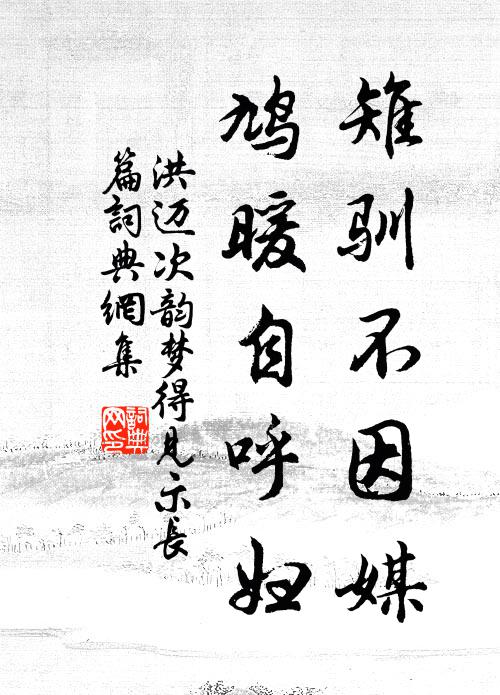 雉驯不因媒
鸠暖自呼妇
洪迈次韵梦得见示长
篇詞典網集
詞典
网印